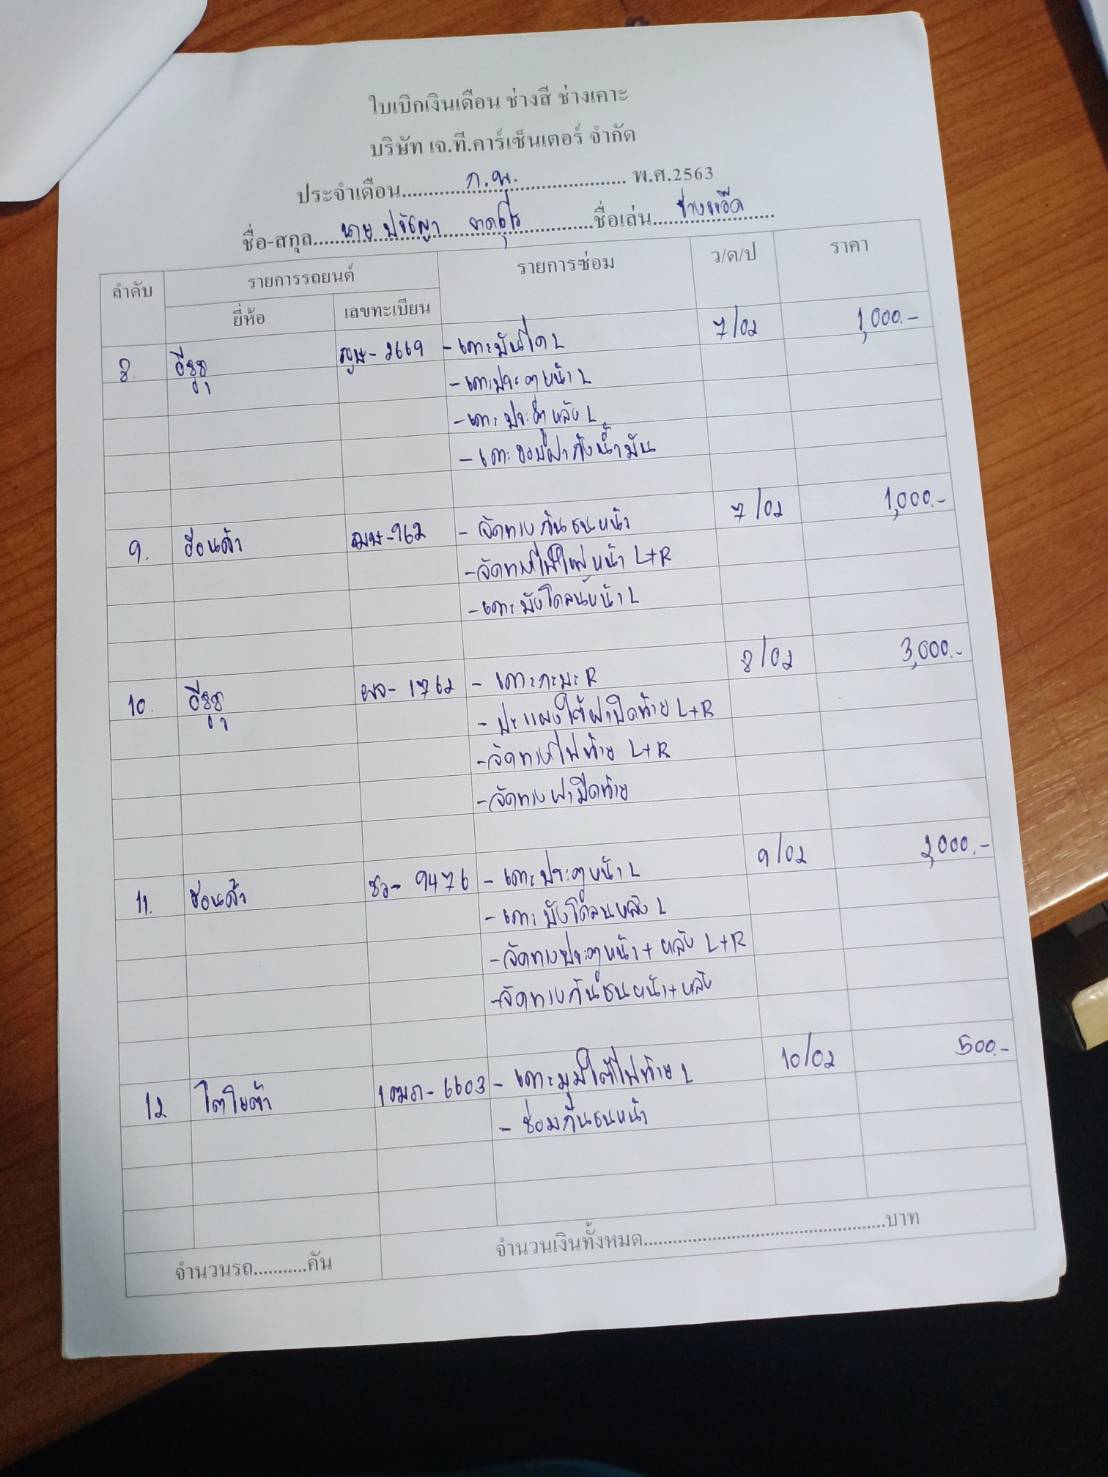 ใบเบิกเงินเดือน ช่างสี ช่างเคาะ
บริษัท เจ.ที.คาร์เซ็นเตอร์ จำกัด
ประจำเดือน.......ก.พ........ พ.ศ.2563
ชื่อ-สกุล....นาย ปรัชญา ....ชื่อเล่น....ช่างแอ๊ด....
ลำดับ รายการรถยนต์ รายการซ่อม ว/ด/ป ราคา
ยี่ห้อ เลขทะเบียน
8. อีซูซุ - 2669 - เคาะบันได L 7/02 1,000.-
- เคาะประตูหน้า L
- เคาะประตูหลัง L
- เคาะขอบฝาถังน้ำมัน
9. ฮอนด้า -962 - จัดทางกันชนหน้า 7/02 1,000.-
- จัดทางไฟใหญ่หน้า L+R
- เคาะบังโคลนหน้า L
10. อีซูซุ - 1762 - เคาะกะบะ R 8/02 3,000.-
- ปะแผงใต้ฝาปิดท้าย L+R
- จัดทางไฟท้าย L+R
- จัดทางฝาปิดท้าย
11. ฮอนด้า - 9476 - เคาะประตูหน้า L 9/02 2,000.-
- เคาะบังโคลนหลัง L
- จัดทางประตูหน้า + หลัง L+R
- จัดทางกันชนหน้า+หลัง
12 โตโยต้า - 6603 - เคาะมุมใต้ไฟท้าย L 10/02 500.-
- ซ่อมกันชนหน้า
จำนวนรถ...........คัน จำนวนเงินทั้งหมด..................................................บาท